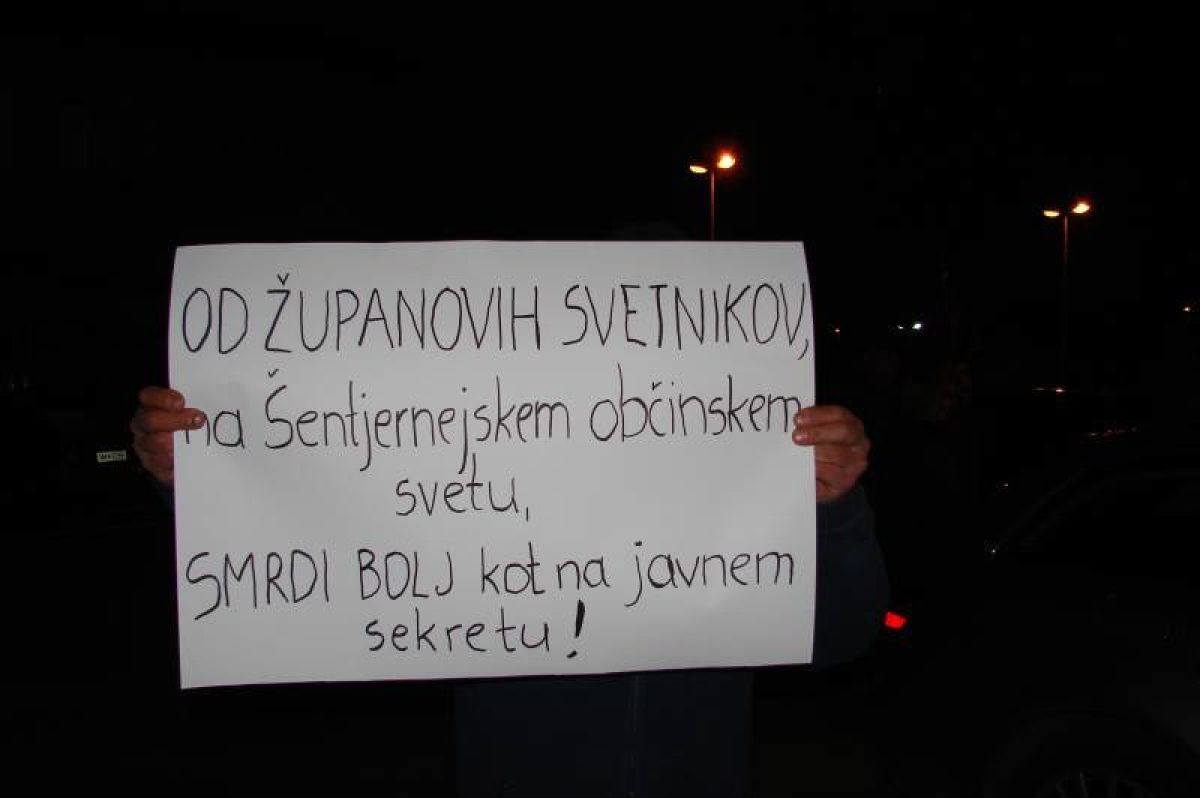 OD ŽUPANOVIH SVETNIKOV,
na Šentjernejskem občinskem
svetu,
SMRDI BOLJ kot na javnem
sekretu!